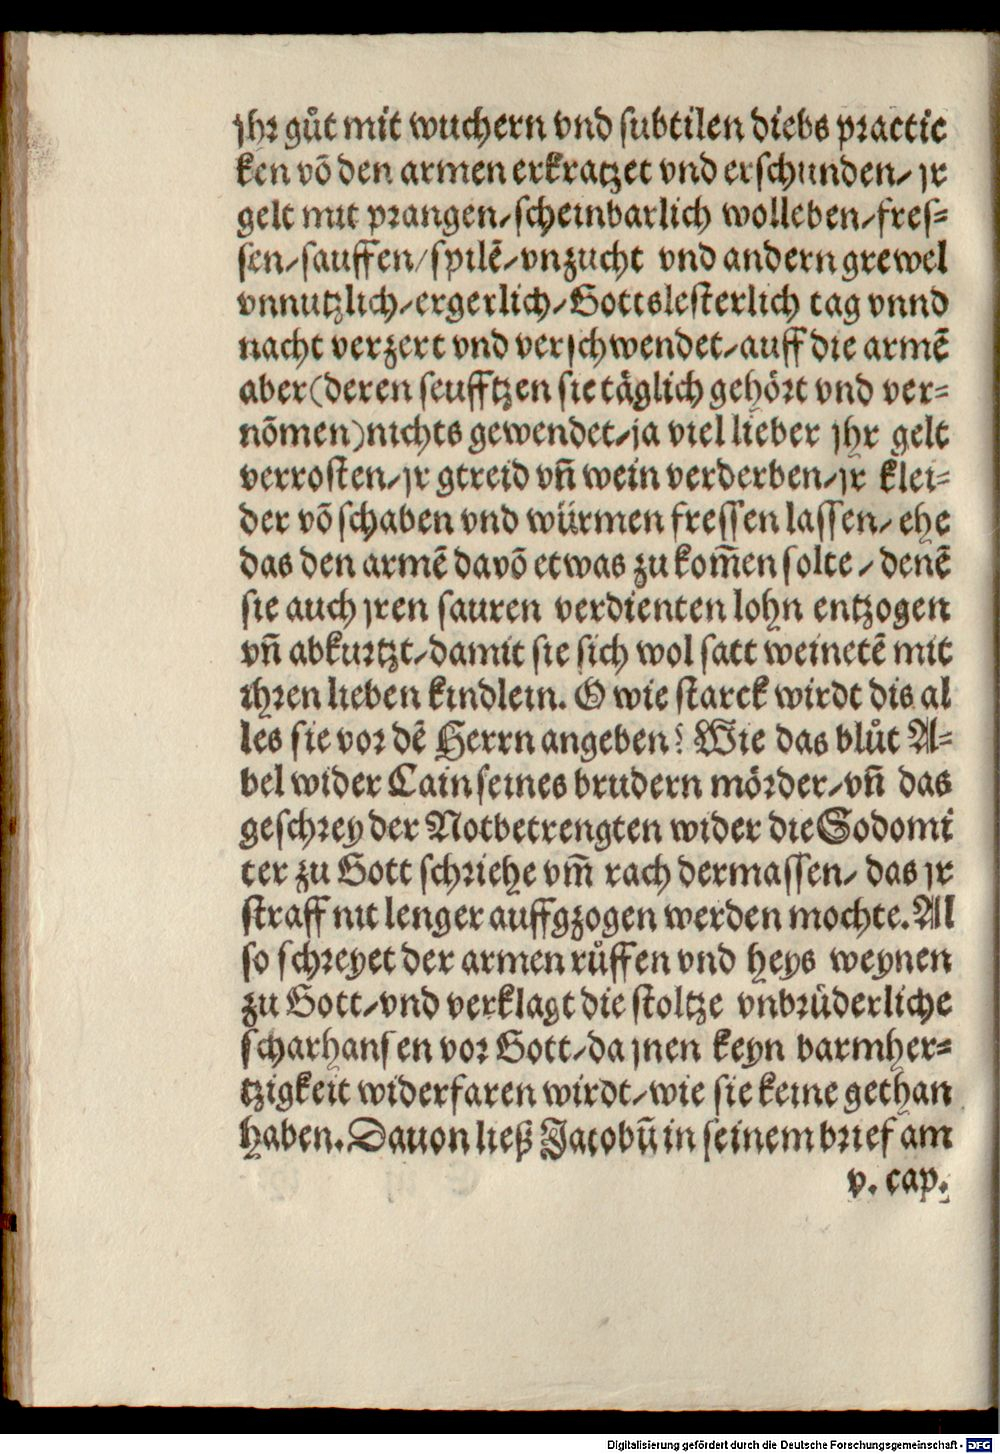 jhr gůt mit wuchern vnd subtilen diebs practic
ken võ den armen erkratzet vnd erschunden/ jr
gelt mit prangen/scheinbarlich wolleben/fres-
sen/sauffen/spilẽ/vnzucht vnd andern grewel
vnnutzlich/ergerlich/Gottslesterlich tag vnnd
nacht verzert vnd verschwendet/auff die armẽ
aber(deren seufftzen sie täglich gehört vnd ver-
nõmen)nichts gewendet/ja viel lieber jhr gelt
verrosten/jr gtreid vñ wein verderben/jr klei-
der võ schaben vnd würmen fressen lassen/ ehe
das den armẽ davõ etwas zu kom̃en solte/ denẽ
sie auch jren sauren verdienten lohn entzogen
vñ abkurtzt/damit sie sich wol satt weinetẽ mit
ihren lieben kindlein. O wie starck wirdt dis al
les sie vor dẽ Herrn angeben? Wie das blůt A-
bel wider Cain seines brudern mörder/vñ das
geschrey der Notbetrengten wider die Sodomi
ter zu Gott schriehe vm̃ rach dermassen/ das jr
straff nit lenger auffgzogen werden mochte. Al
so schreyet der armen růffen vnd heys weynen
zu Gott/vnd verklagt die stoltze vnbrüderliche
scharhansen vor Gott/da jnen keyn barmher-
tzigkeit widerfaren wirdt/wie sie keine gethan
haben. Dauon ließ Jacobũ in seinem brief am
v. cap.
Digitalisierung gefördert durch die Deutsche Forschungsgemeinschaft - DFG